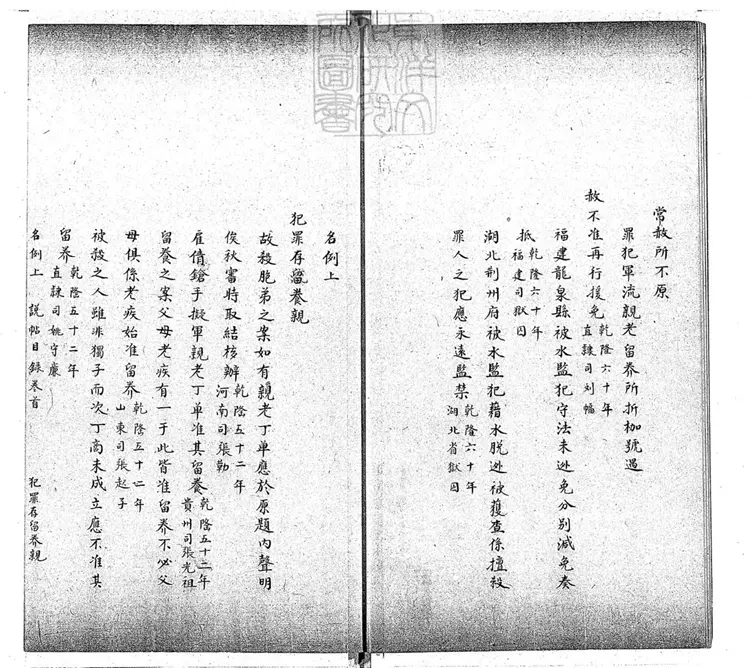 常赦所不原
罪犯軍流親老留养所折枷號遇
赦不准再行援免乾隆六十年直隸司刘幅
福建龍泉縣被水監犯守法未逃免分別減免奏
抵乾隆六十年福建司獄囚
湖北荊州府被水監犯藉水脱逃被獲查係擅殺
罪人之犯應永遠監禁乾隆六十年湖北省獄囚
名例上
犯罪存留養親
故殺胞弟之案如有親老丁单應於原題内聲明
俟秋審時取結核辦乾隆五十二年河南司張勒
雇債鎗手擬軍親老丁单准其留養乾隆五十二年貴州司張光祖
留養之案父母老疾有一于此皆准留养不必父
母俱係老疾始准留养乾隆五十二年山東司張起子
被殺之人雖非獨子而次丁尚未成立應不准其
留养乾隆五十二年直隸司姚守慶
名例上 説帖目録卷首 犯罪存留养親
東洋文化研究所圖書